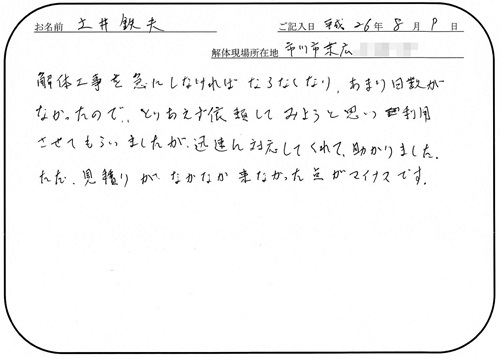 お名前 土井 鉄夫 ご記入日 平成 26年 8月 9日
解体現場所在地 市川市末広
解体工事を急にしなければならなくなり、あまり日数が
なかったので、とりあえず依頼してみようと思い利用
させてもらいましたが、迅速に対応してくれて、助かりました。
ただ、見積りがなかなか来なかった点がマイナスです。